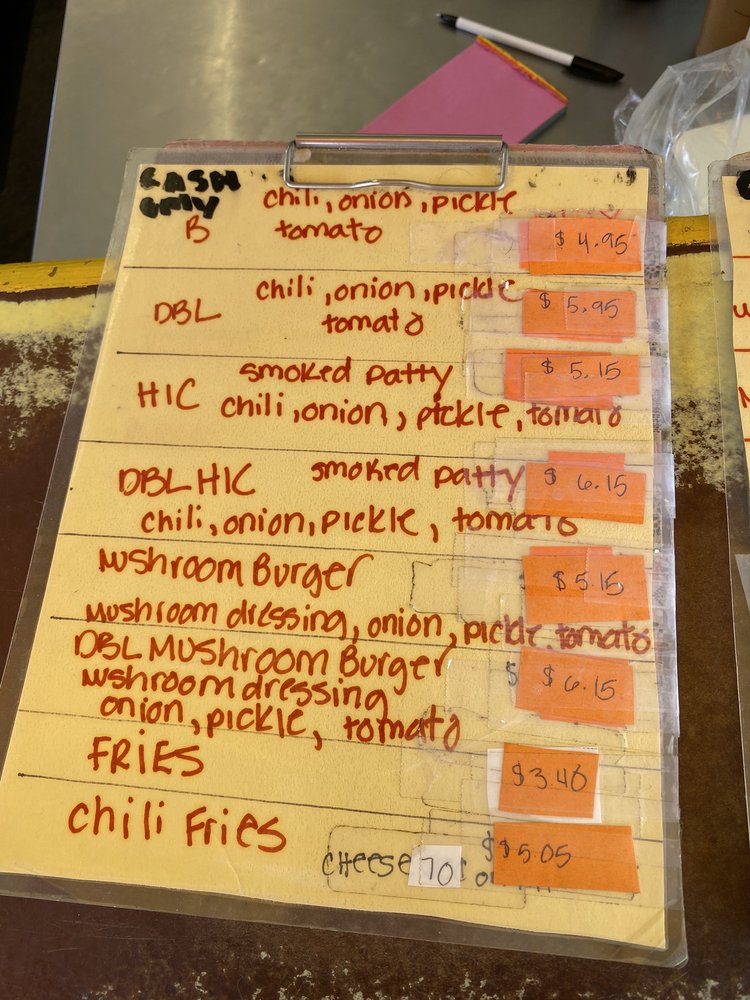 CASH
ONLY
chili, onion, pickle
B tomato $4.95
DBL chili, onion, pickle $5.95
tomato
smoked patty $5.15
HIC chili, onion, pickle, tomato
DBL HIC smoked patty $6.15
chili, onion, pickle, tomato
Mushroom Burger $5.15
Mushroom dressing, onion, pickle, tomato
DBL MUSHROOM Burger
Mushroom dressing $ $6.15
onion, pickle, tomato
FRIES $3.40
chili Fries $$5.05
CHEESE 70¢